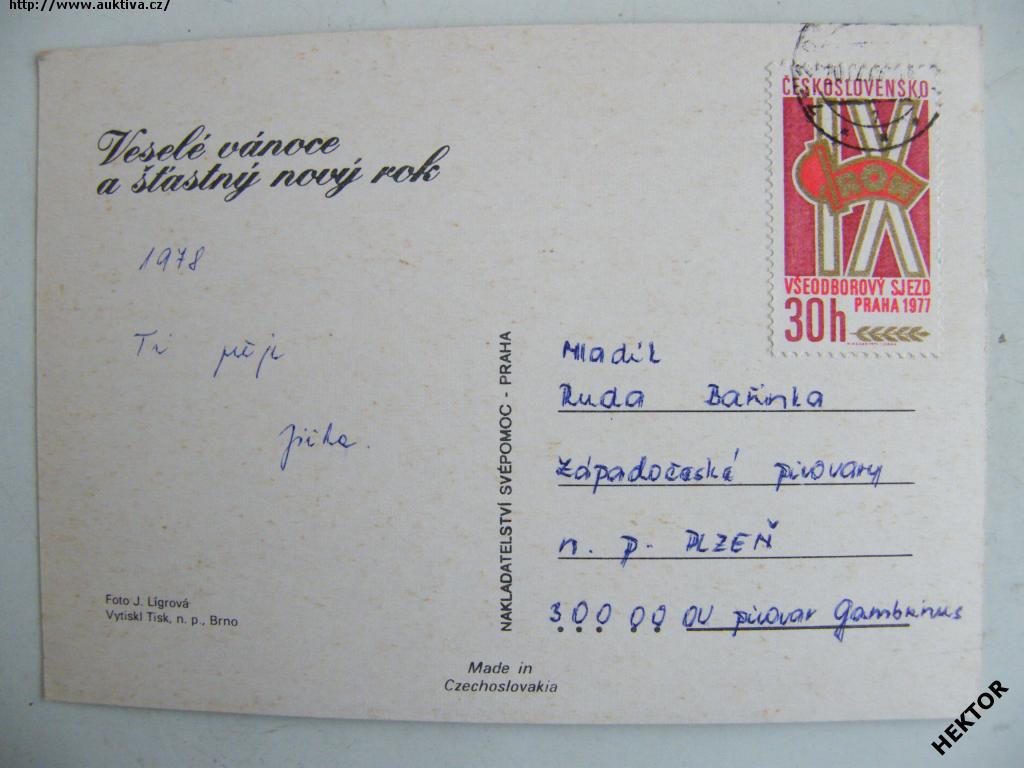 http://www.auktiva.cz/
Veselé vánoce
a šťastný nový rok
1978
Ti přeje
Jiřka.
Foto J. Lígrová
Vytiskl Tisk, n. p., Brno
NAKLADATELSTVÍ SVÉPOMOC - PRAHA
Made in
Czechoslovakia
ČESKOSLOVENSKO
IX
ROH
VŠEODBOROVÝ SJEZD
PRAHA 1977
30h
Mladík
Ruda
Západočeské pivovary
n. p. PLZEŇ
300 00 OV pivovar Gambrinus
HEKTOR